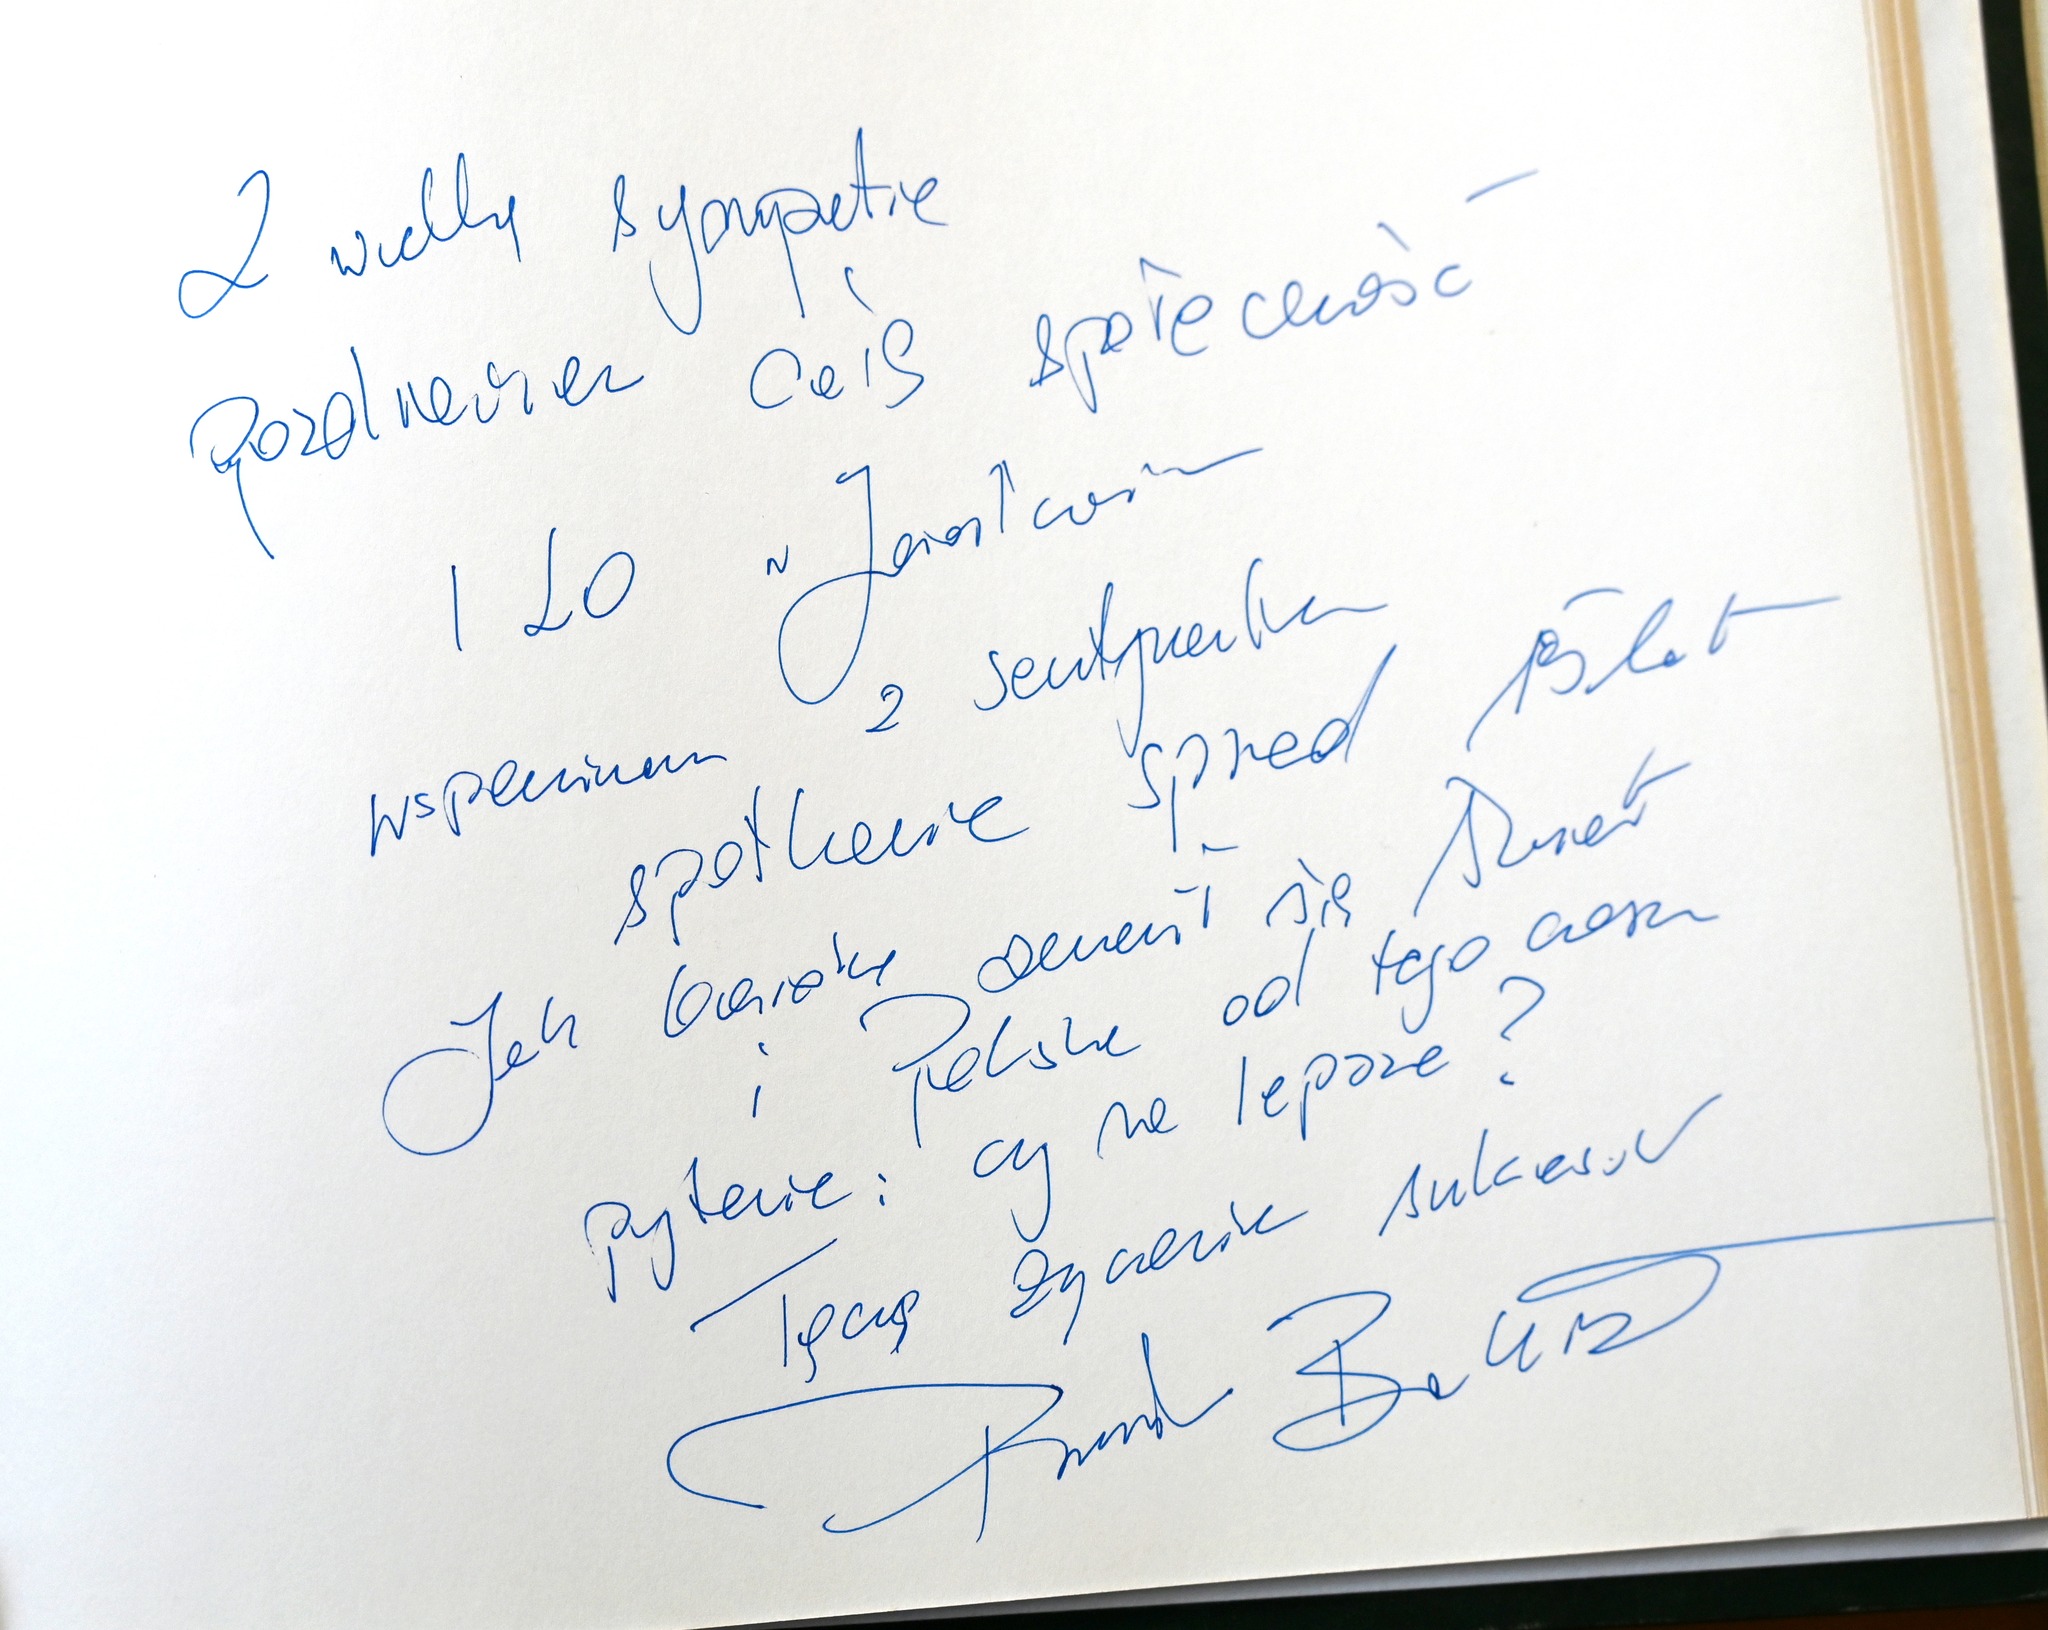 Z wielką sympatią
pozdrawiam całą społeczność
I LO w Jarosławiu
wspominam z sentymentem
spotkanie sprzed lat
Jak bardzo zmienił się świat
i Polska od tego czasu
pytanie: czy na lepsze?
Łączę życzenia sukcesów